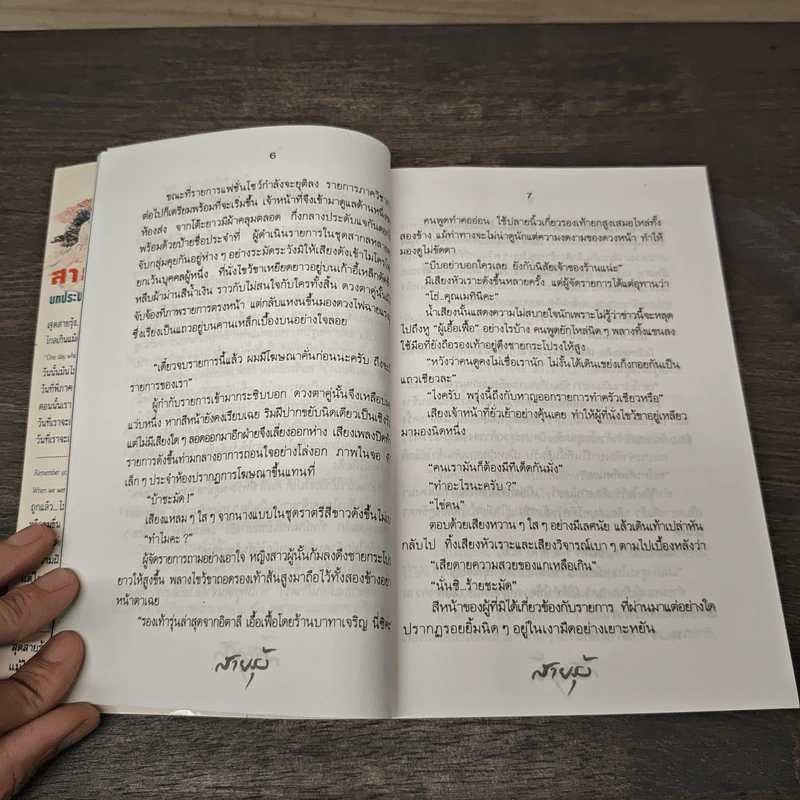 สา
บทประพ
สุดสายรุ้ง
"One day whe
วันที่เราจะ
Remember yo
When we wer
6
ขณะที่รายการแฟชั่นโชว์กำลังจะยุติลง รายการภาควิชา
ต่อไปก็เตรียมพร้อมที่จะเริ่มขึ้น เจ้าหน้าที่จึงเข้ามาดูแลด้านหนึ่ง
ห้องส่ง จากโต๊ะยาวมีผ้าคลุมตลอด กึ่งกลางประดับแจกัน
พร้อมด้วยป้ายชื่อประจำที่ ผู้ดำเนินรายการในชุดสากล
จับกลุ่มคุยกันอยู่ห่าง ๆ อย่างระมัดระวังมิให้เสียงดังเข้าไมโคร
ยกเว้นบุคคลผู้หนึ่ง ที่นั่งไขว้ขาเหยียดยาวอยู่บนเก้าอี้เหล็ก
หลับผ้าม่านสีน้ำเงิน ราวกับไม่สนใจกับใครทั้งสิ้น ดวงตาคู่นั้น
จับจ้องที่ภาพรายการตรงหน้า แต่กลับแหงนขึ้นมองดวงไฟฉาย
ซึ่งเรียงเป็นแถวอยู่บนคานเหล็กเบื้องบนอย่างใจลอย
"เดี๋ยวจบรายการนี้แล้ว ผมมีโฆษณาคั่นก่อนนะครับ ถึงจะ
รายการของเรา"
ผู้กำกับรายการเข้ามากระซิบบอก ดวงตาคู่นั้นจึงเหลือบ
แวบหนึ่ง หากสีหน้ายังคงเรียบเฉย ริมฝีปากขยับนิดเดียวเป็นเชิง
แต่ไม่มีเสียงใด ๆ ลอดออกมาอีกฝ่ายจึงเลี่ยงออกห่าง เสียงเพลงปิด
รายการดังขึ้นท่ามกลางอาการถอนใจอย่างโล่งอก ภาพในจอ
เล็ก ๆ ประจำห้องปรากฏการโฆษณาขึ้นแทนที่
"บ้าชะมัด !"
เสียงแหลม ๆ ใส ๆ จากนางแบบในชุดราตรีสีขาวดังขึ้น
"ทำไมคะ ?"
ผู้จัดรายการถามอย่างเอาใจ หญิงสาวผู้นั้นก้มลงดึงชายกระโปรง
ยาวให้สูงขึ้น พลางไขว้ขาถอดรองเท้าส้นสูงมาถือไว้ทั้งสองข้างอย่าง
หน้าตาเฉย
"รองเท้ารุ่นล่าสุดจากอิตาลี เอื้อเฟื้อโดยร้านบาทาเจริญ นี่ซิคะ
สายรุ้ง
7
คนพูดทำคออ่อน ใช้ปลายนิ้วเกี่ยวรองเท้ายกสูงเสมอไหล่ทั้ง
สองข้าง แม้ท่าทางจะไม่น่าดูนักแต่ความงดงามของดวงหน้า ทำให้
มองดูไม่ขัดตา
"บีบอย่าบอกใครเลย ยังกับนิสัยเจ้าของร้านแน่ะ"
มีเสียงหัวเราะดังขึ้นหลายครั้ง แต่ผู้จัดรายการได้แต่อุทานว่า
"โธ่..คุณเมทินีคะ"
น้ำเสียงนั้นแสดงความไม่สบายใจนักเพราะไม่รู้ว่าข่าวนี้จะหลุด
ไปถึงหู "ผู้เอื้อเฟื้อ" อย่างไรบ้าง คนพูดยักไหล่นิด ๆ พลางทิ้งแขนลง
ใช้มือที่ยังถือรองเท้าอยู่ดึงชายกระโปรงให้สูง
"หวังว่าคนดูคงไม่เชื่อเรานัก ไม่งั้นได้เดินเขย่งเก็งกอยกันเป็น
แถวเชียวละ"
"ไงครับ พรุ่งนี้ถึงกับหาญออกรายการทำครัวเชียวหรือ"
เสียงเจ้าหน้าที่ยั่วเย้าอย่างคุ้นเคย ทำให้ผู้ที่นั่งไขว้ขาอยู่เหลียว
มามองนิดหนึ่ง
"คนเรามันก็ต้องมีทีเด็ดกันมั่ง"
"ทำอะไรนะครับ ?"
"ไข่คน"
ตอบด้วยเสียงหวาน ๆ ใส ๆ อย่างมีเลศนัย แล้วเดินเท้าเปล่าหัน
กลับไป ทิ้งเสียงหัวเราะและเสียงวิจารณ์เบา ๆ ตามไปเบื้องหลังว่า
"เสียดายความสวยของแกเหลือเกิน"
"นั่นซิ...ร้ายชะมัด"
สีหน้าของผู้ที่มิได้เกี่ยวข้องกับรายการ ที่ผ่านมาแต่อย่างใด
ปรากฏรอยยิ้มนิด ๆ อยู่ในเงามืดอย่างเยาะหยัน
สายรุ้ง